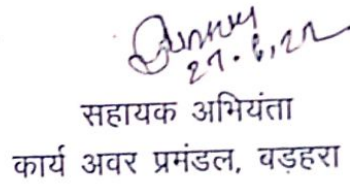 27.6.22
सहायक अभियंता
कार्य अवर प्रमंडल, वड़हरा